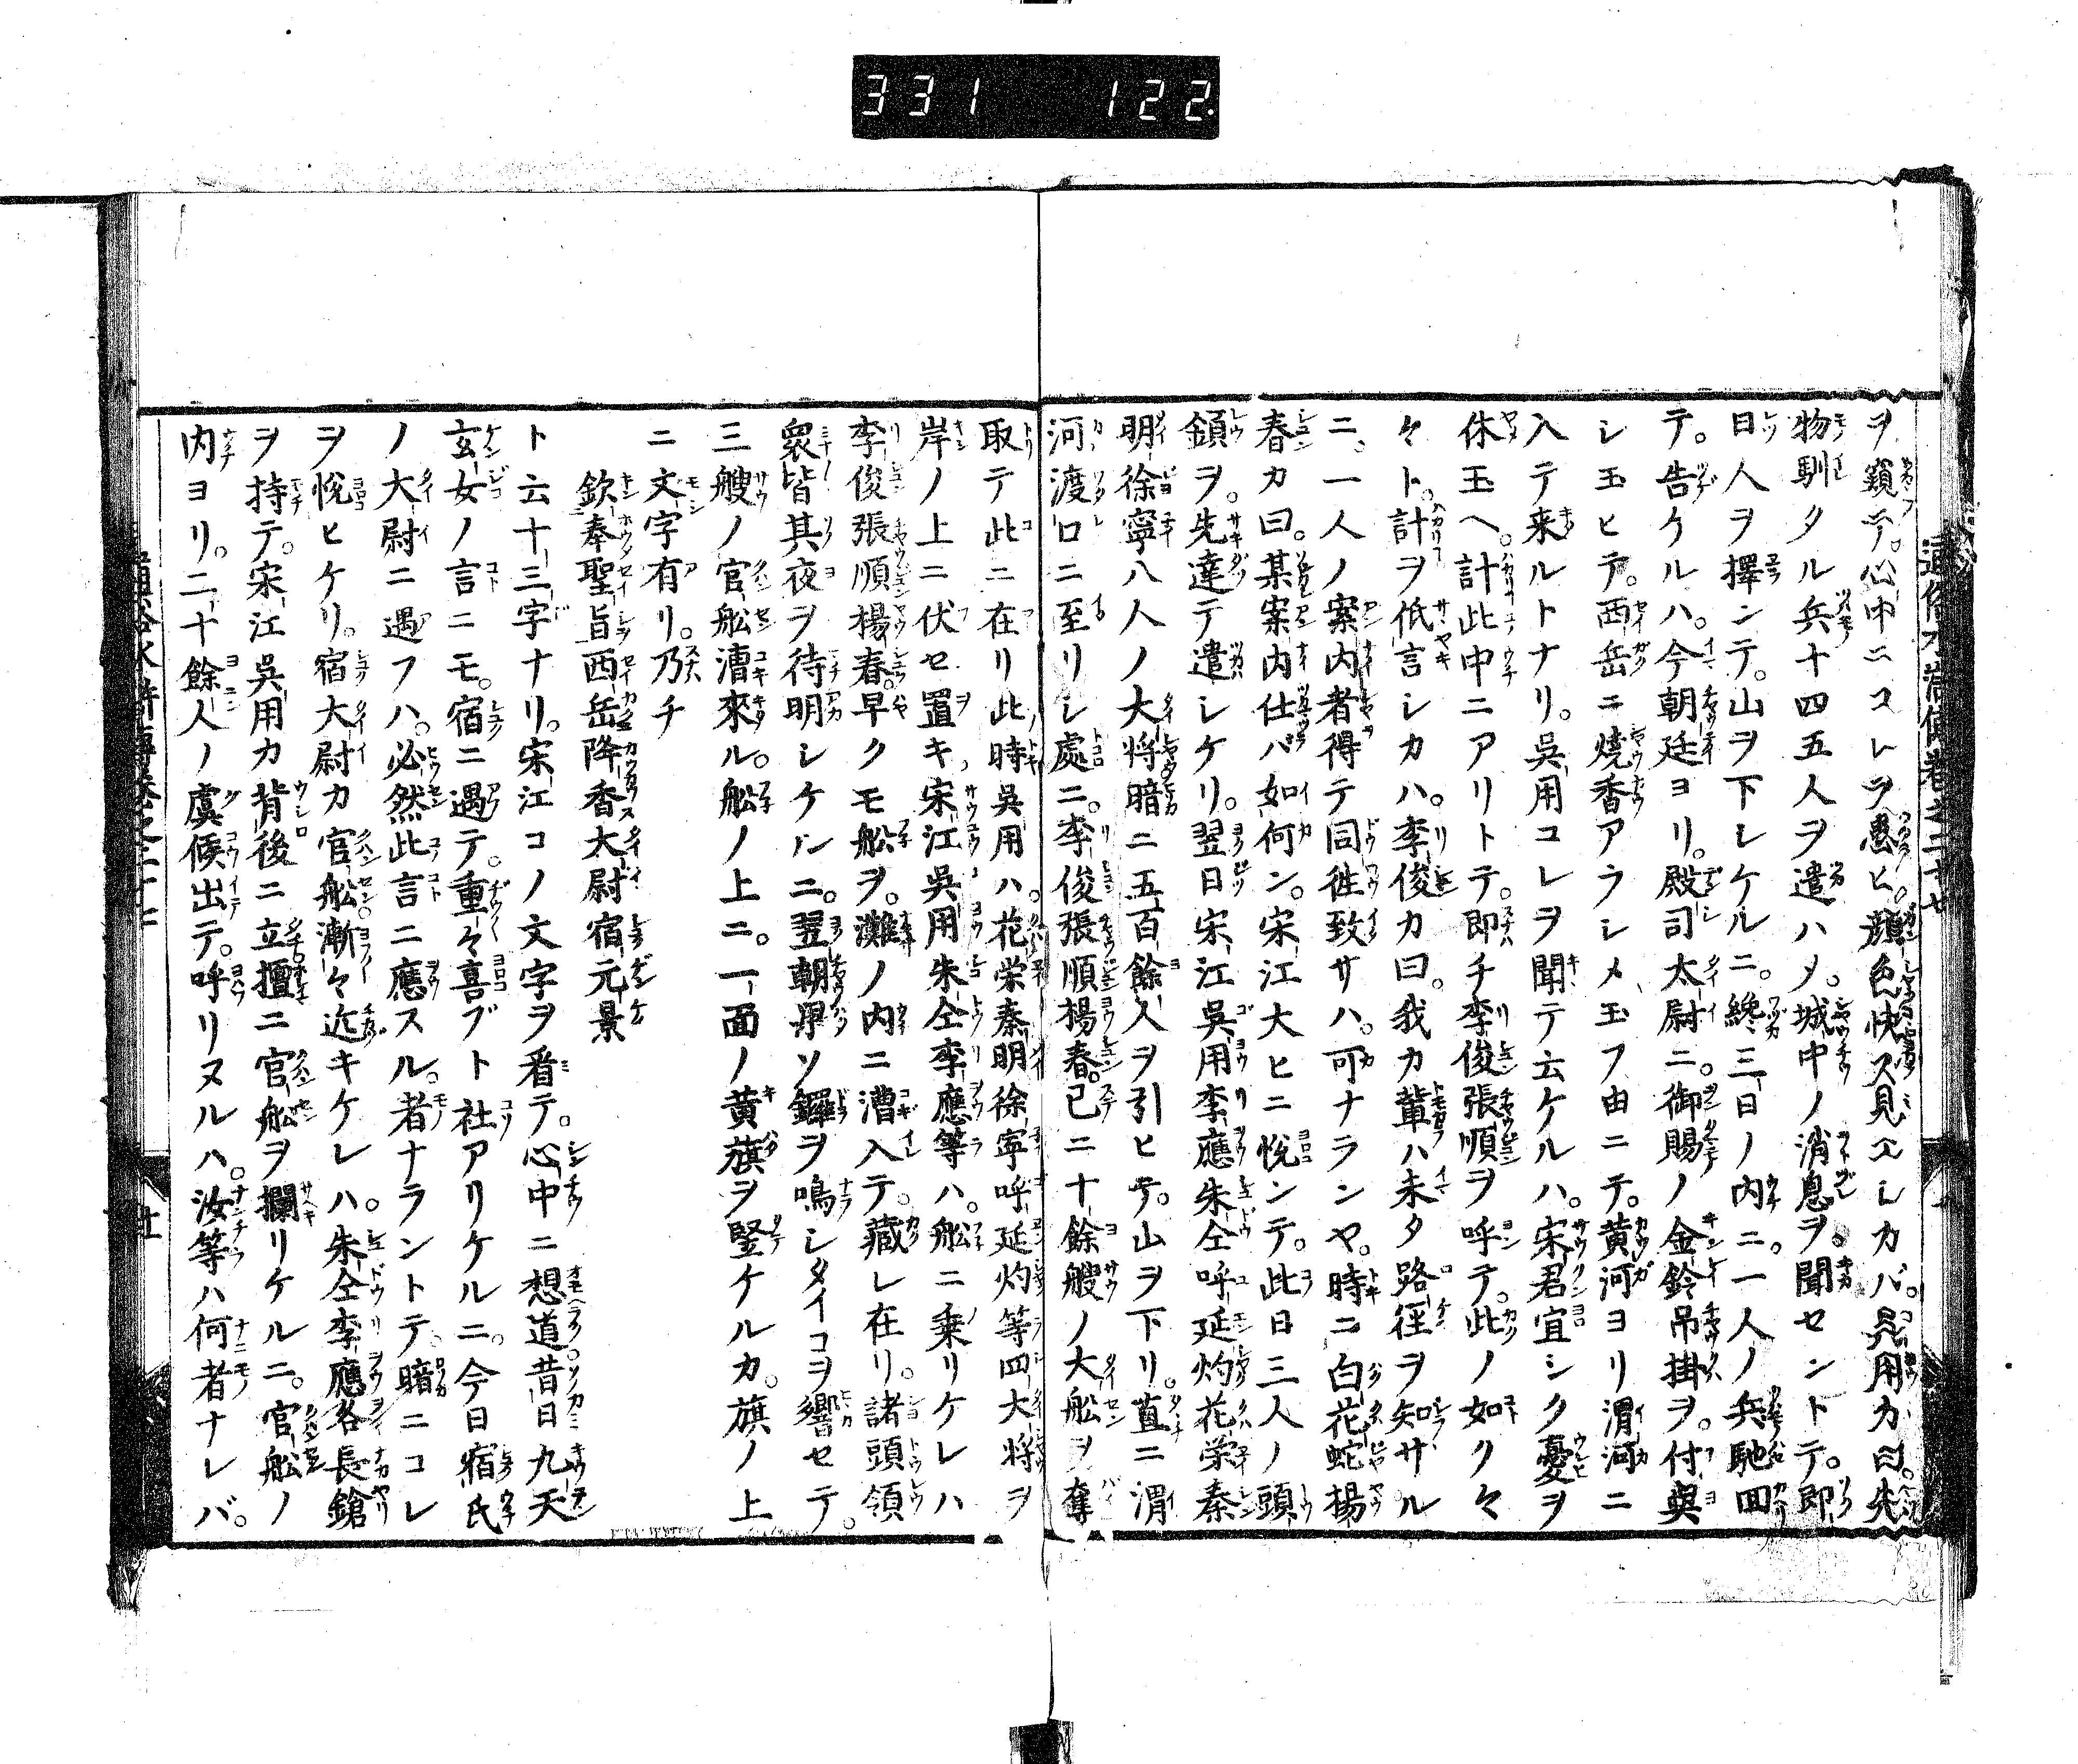 331 122.
ヲ窺テ。心中ニコレヲ愚ヒ。顔色快ス見エシカバ。呉用カ曰。先
物馴タル兵十四五人ヲ遣ハメ。城中ノ消息ヲ。聞セントテ。即
日人ヲ擇ンテ。山ヲ下シケルニ。纔三日ノ内ニ。一人ノ兵馳回
テ。告ケルハ。今朝廷ヨリ。殿司太尉ニ。御賜ノ金鈴吊掛ヲ。付與
シ玉ヒテ。西岳ニ燒香アラシメ玉フ由ニテ。黄河ヨリ渭河ニ
入テ来ルトナリ。吳用コレヲ聞テ云ケルハ。宋君宜シク憂ヲ
休玉ヘ。計此中ニアリトテ。即チ李俊張順ヲ呼テ。此ノ如ク々
々ト。計ヲ低言シカハ。李俊カ曰。我カ輩ハ未タ路徑ヲ知サル
ニ。一人ノ案内者得テ同徃致サハ。可ナランヤ。時ニ白花蛇楊
春カ曰。某案内仕バ如何ン。宋江大ヒニ悅ンテ。此日三人ノ頭
領ヲ。先達テ遣シケリ。翌日宋江吳用李應朱仝呼延灼花栄秦
明徐寧八人ノ大将暗ニ五百餘人ヲ引ヒテ。山ヲ下リ。直ニ渭
河渡口ニ至リシ處ニ。李俊張順楊春。已ニ十餘艘ノ大舩ヲ奪
取テ此ニ在リ此時吳用ハ。花栄秦明徐寧呼延灼等四大将ヲ
岸ノ上ニ伏セ置キ宋江吳用朱仝李應等ハ。舩ニ乗リケレハ
李俊張順楊春。早クモ舩ヲ。灘ノ内ニ漕入テ。藏レ在リ。諸頭領
衆皆其夜ヲ待明シケルニ。翌朝果ソ鑼ヲ鳴シタイコヲ響セテ。
三艘ノ官舩漕來ル。舩ノ上ニ。一面ノ黄旗ヲ竪ケルカ。旗ノ上
ニ文字有リ。乃チ
欽奉聖旨西岳降香太尉宿元景
ト云十三字ナリ。宋江コノ文字ヲ看テ。心中ニ想道昔日九天
玄女ノ言ニモ。宿ニ遇テ。重々喜ブト社アリケルニ。今日宿氏
ノ大尉ニ遇フハ。必然此言ニ應スル。者ナラントテ。暗ニコレ
ヲ悅ヒケリ。宿大尉カ官舩漸々近キケレハ。朱仝李應各長鎗
ヲ持テ。宋江吳用カ背後ニ立擅ニ官舩ヲ攔リケルニ。官舩ノ
内ヨリ。二十餘人ノ虞候出テ。呼リヌルハ。汝等ハ何者ナレバ。